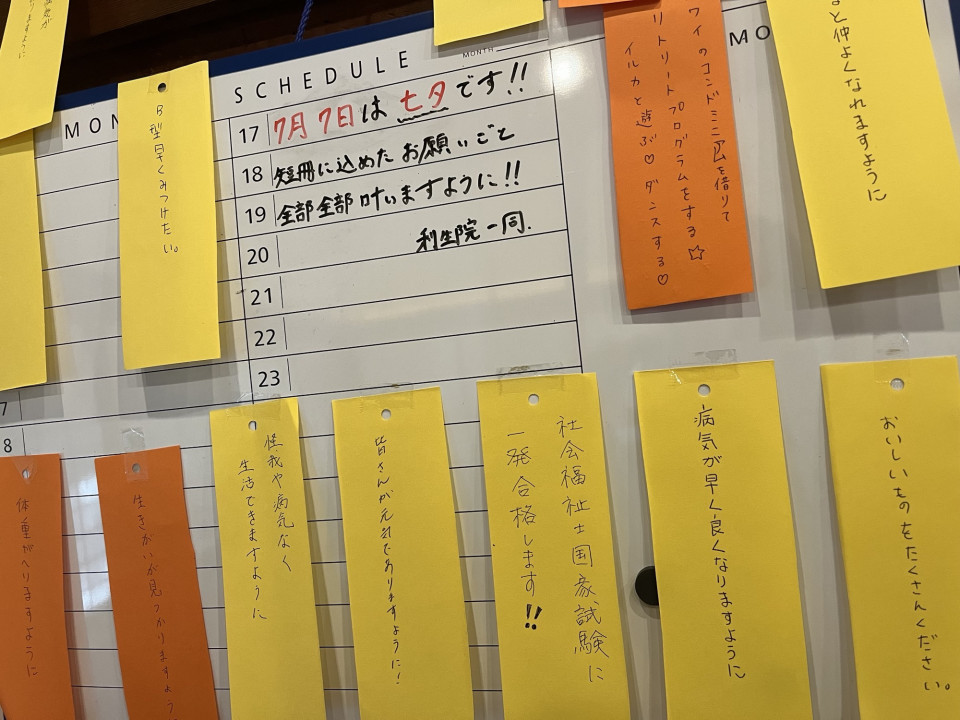 SCHEDULE
MONTH
MON
MO
17
18
19
20
21
22
23
7
8
7月7日は七夕です!!
短冊に込めたお願いごと
全部全部叶いますように!!
利生院一同.
B型早くみつけたい。
ワイのコンドミニアムを借りて
リトリートプログラムをする☆
イルカと遊ぶ♡ダンスする♡
と仲よくなれますように
ありますように
体重がへりますように
生きがいが見つかりますよう
怪我や病気なく
生活できますように
皆さんが元気でありますように!
社会福祉士国家試験に
一発合格します!!
病気が早く良くなりますように
おいしいものをたくさんください。